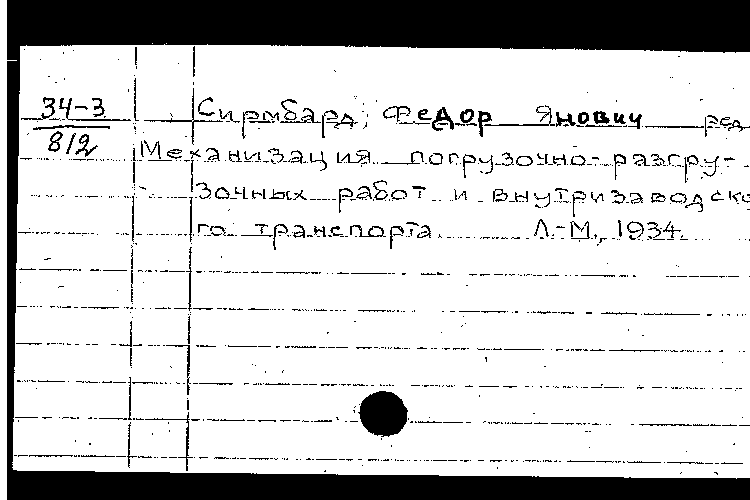 34-3 Сирмбард, Федор Янович ред
8/2 Механизация погрузочно-разгру-
зочных работ и внутризаводско
го транспорта. Л.-М., 1934.